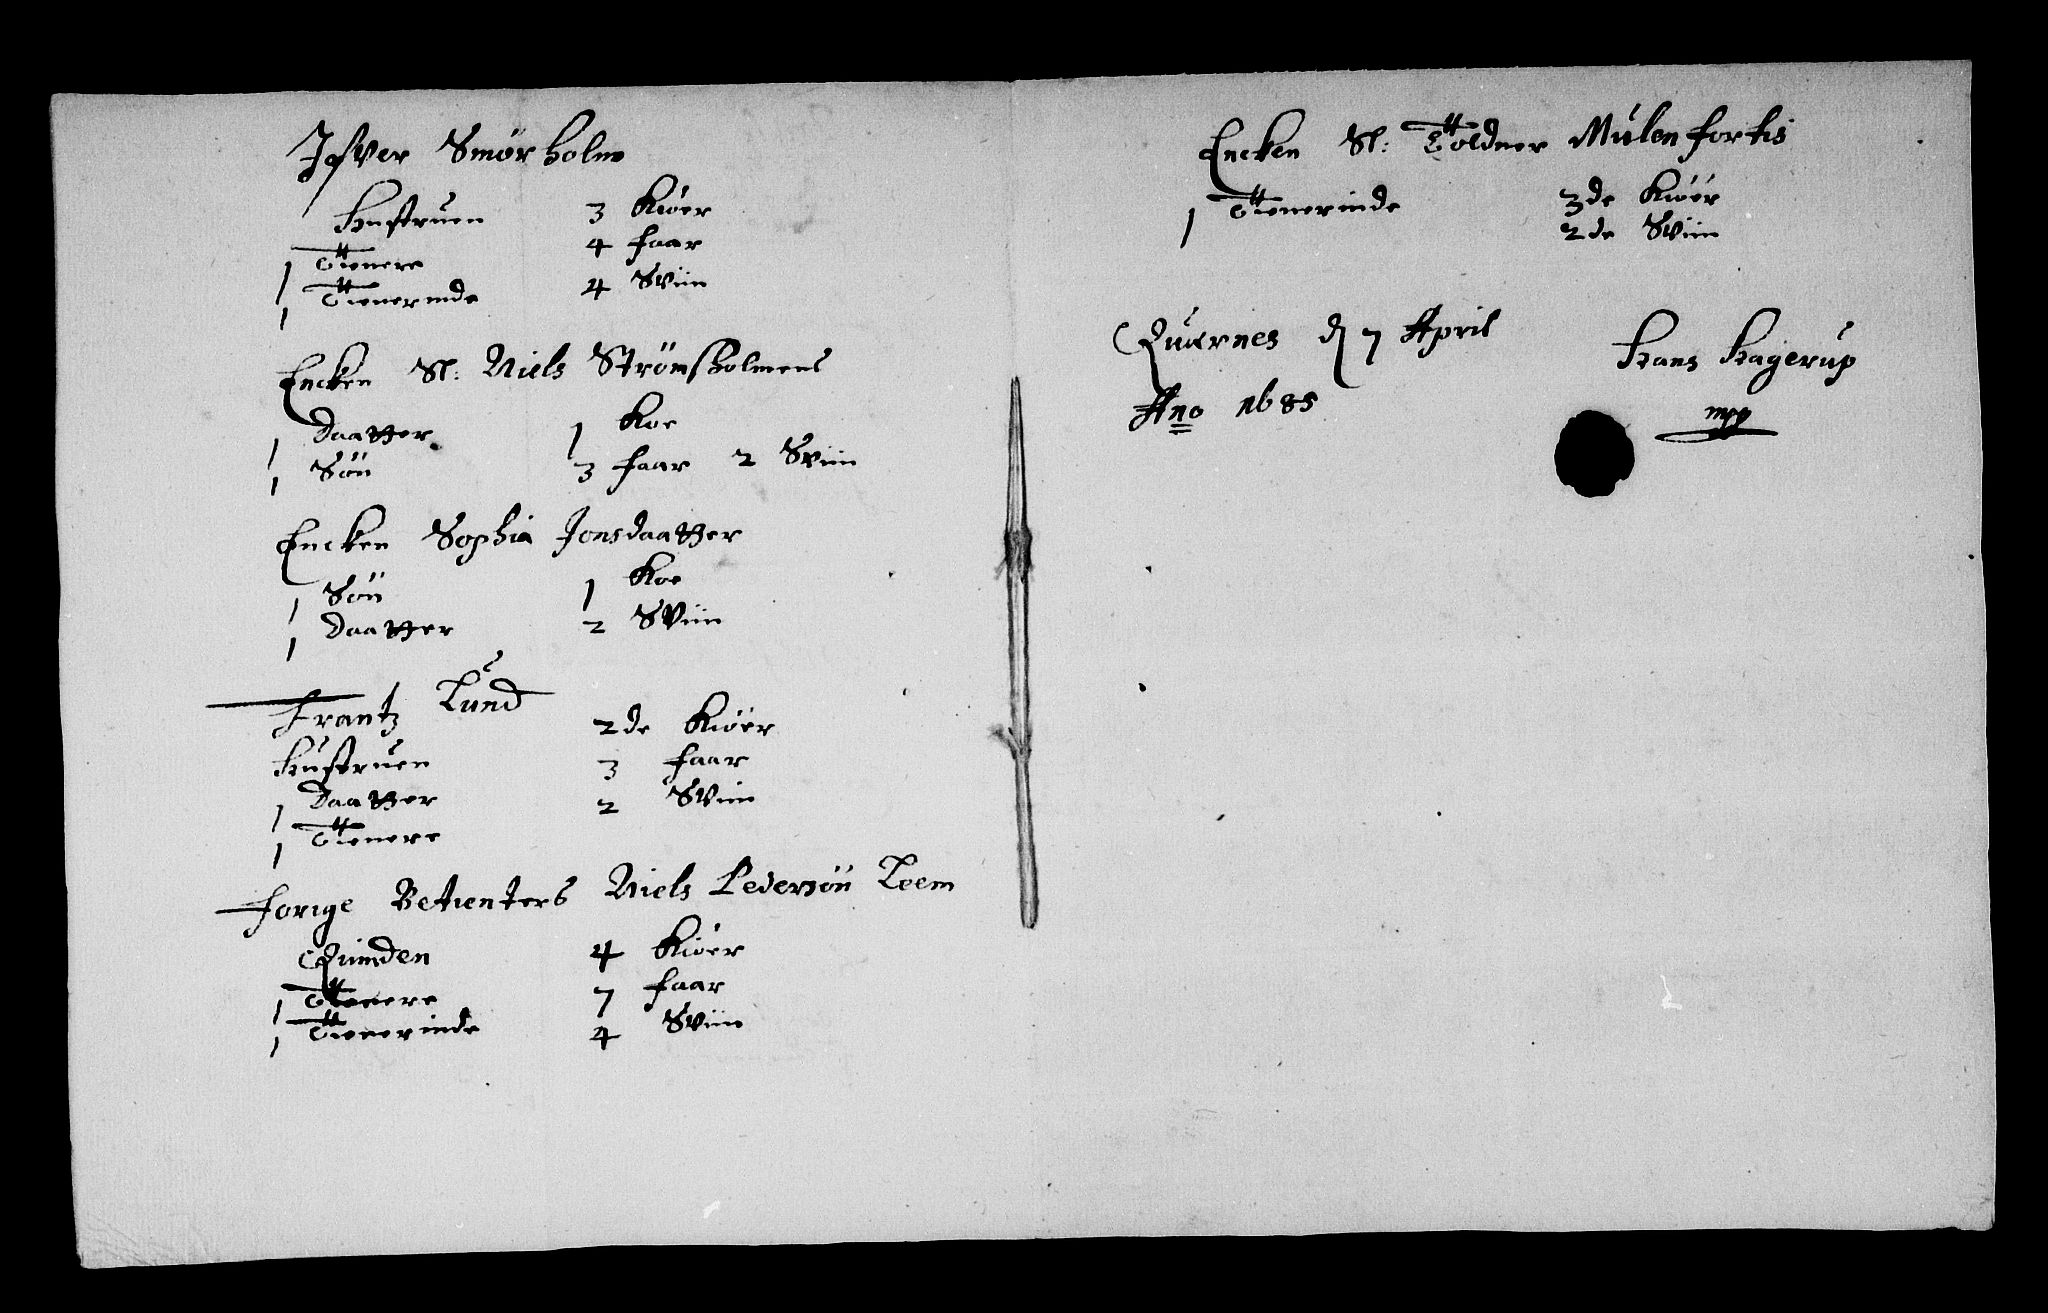 Ifver Smørholm
Hustruen 3 Kiøer
1 Tienere 4 faar
1 Tienerinde 4 Sviin
Encken Sl: Niels Strømsholmens
1 Daatter 1 Koe
1 Søn 3 faar 2 Sviin
Encken Sophia Jonsdaatter
1 Søn 1 Koe
1 Daatter 2 Sviin
Frantz Lund
Hustruen 2de Kiøer
1 Daatter 3 faar
1 Tienere 2 Sviin
Forige Betienters Niels Pedersøn Leem
Quinden 4 Kiøer
1 Tienere 7 faar
1 Tienerinde 4 Sviin
Encken Sl: Toldner Mulenfortis
1 Tienerinde 3de Kiøer
2de Sviin
Quernes d 7 April
Ano 1685
Hans Hagerup
mpp